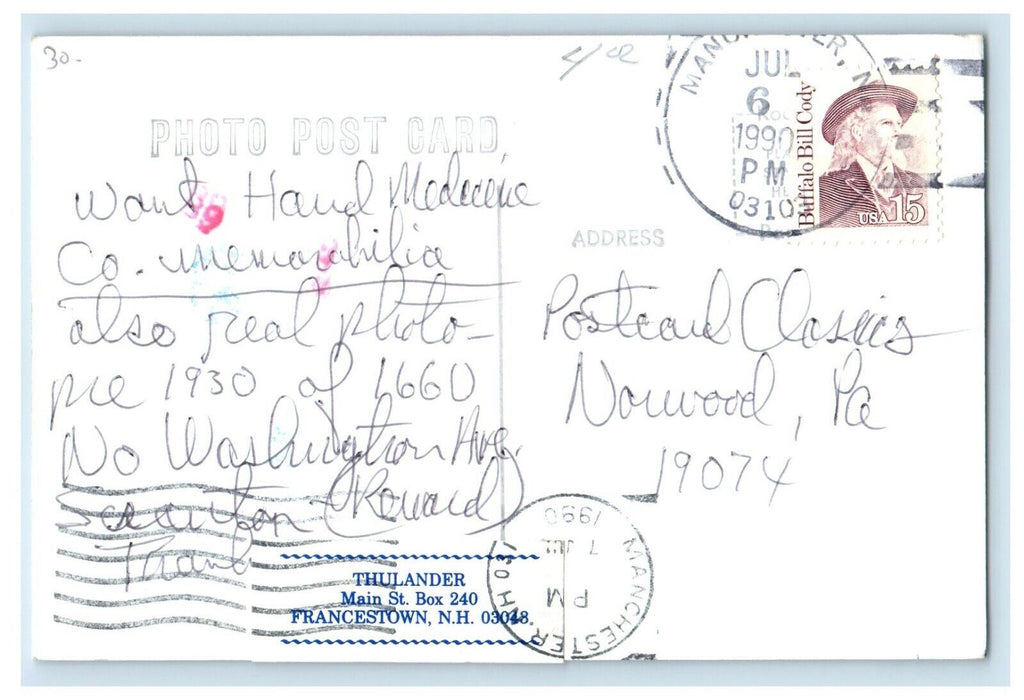 30.-
4 00
MANCHESTER, N
JUL
6
1990
PM
03103
Buffalo Bill Cody
USA 15
PHOTO POST CARD
Want Hand Medicine
Co. memorabilia
also real photo -
pre 1930 of 1660
No Washington Ave.
Scranton (Reward)
Thank
ADDRESS
Postcard Classics
Norwood, Pa
19074
MANCHESTER, N.H. 031
7 JUL
1990
PM
THULANDER
Main St. Box 240
FRANCESTOWN, N.H. 03043